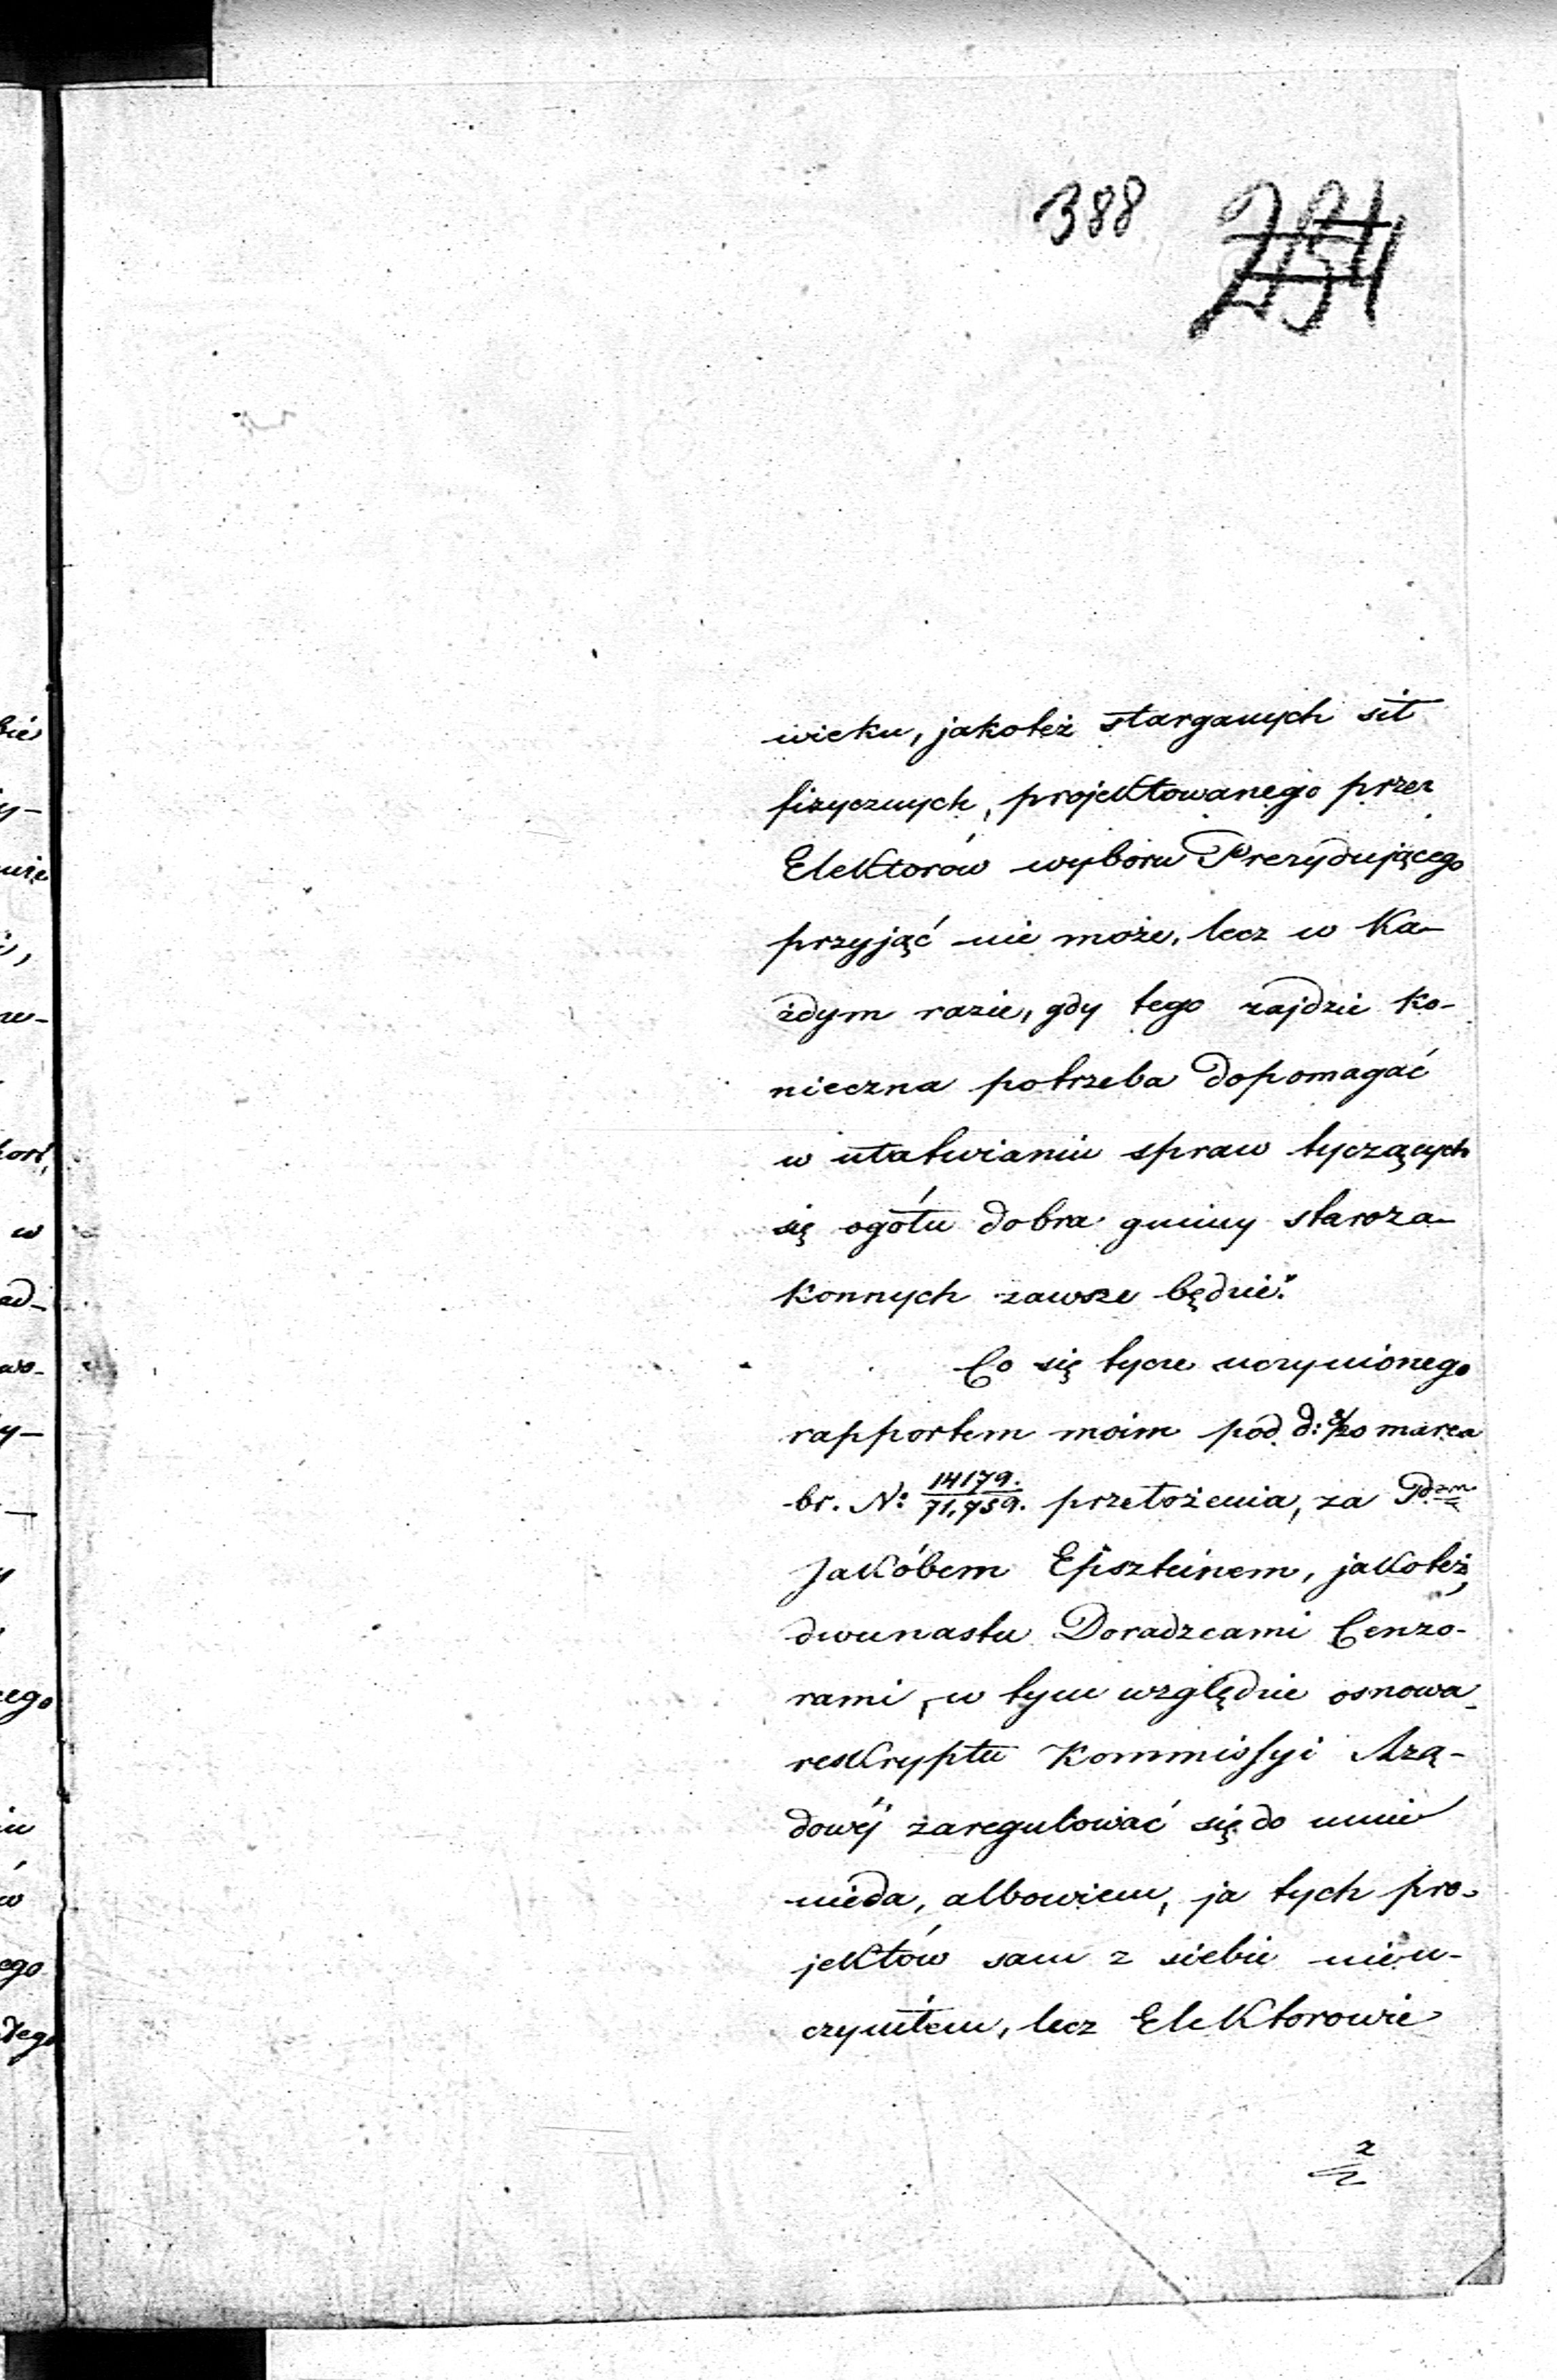 388
wieku, jakoteż starganych sił
fizycznych, projektowanego przez
Elektorów wyboru Prezydującego
przyjąć nie może, lecz w ka-
żdym razie, gdy tego zajdzie ko-
nieczna potrzeba dopomagać
w ułatwianiu spraw tyczących
się ogółu dobra gminy staroza-
konnych zawsze będzie."
Co się tycze uczynionego
rapportem moim pod d: 8/20 marca
br. N: 14179./71,759. przełożenia, za Pdzm
Jakóbem Epszteinem, jakoteż,
dwunastu Doradzcami Cenzo-
rami, w tym względzie osnowa
reskryptu Kommissyi Rzą-
dowéj zaregulować się do mnie
nieda, albowiem, ja tych pro-
jektów sam z siebie nieu-
czyniłem, lecz Elektorowie
z